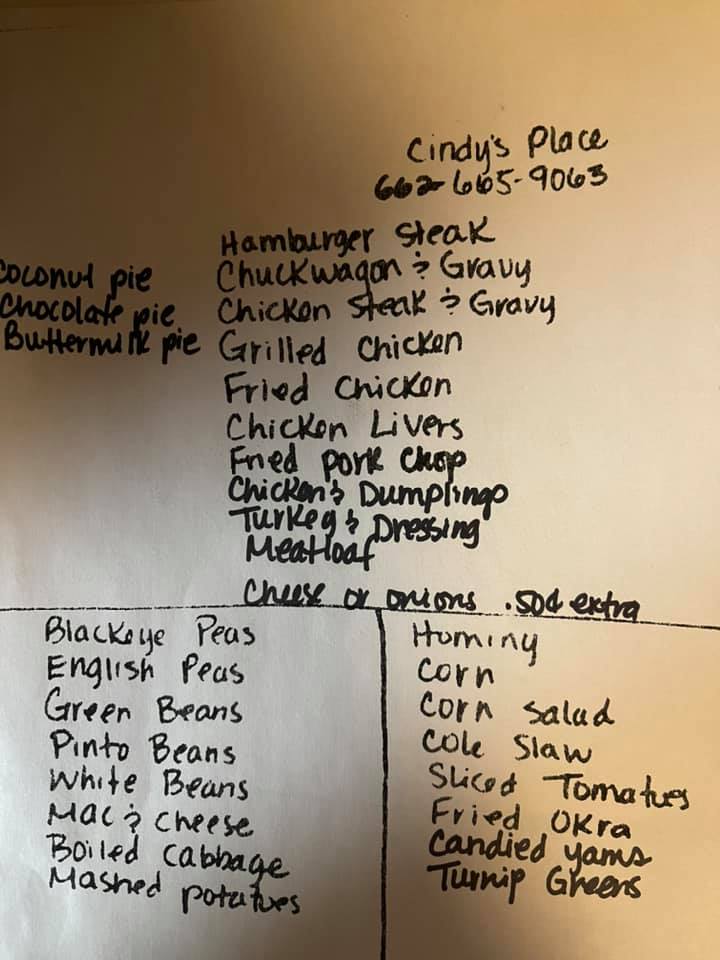 Cindy's Place
662-665-9063
Hamburger Steak
Chuckwagon & Gravy
Chicken Steak & Gravy
Grilled Chicken
Fried Chicken
Chicken Livers
Fried Pork Chop
Chicken & Dumplings
Turkey & Dressing
Meatloaf
Cheese or onions .50¢ extra
Coconut pie
Chocolate pie
Buttermilk pie
Blackeye Peas
English Peas
Green Beans
Pinto Beans
White Beans
Mac & Cheese
Boiled Cabbage
Mashed Potatoes
Hominy
Corn
Corn Salad
Cole Slaw
Sliced Tomatoes
Fried Okra
Candied Yams
Turnip Greens